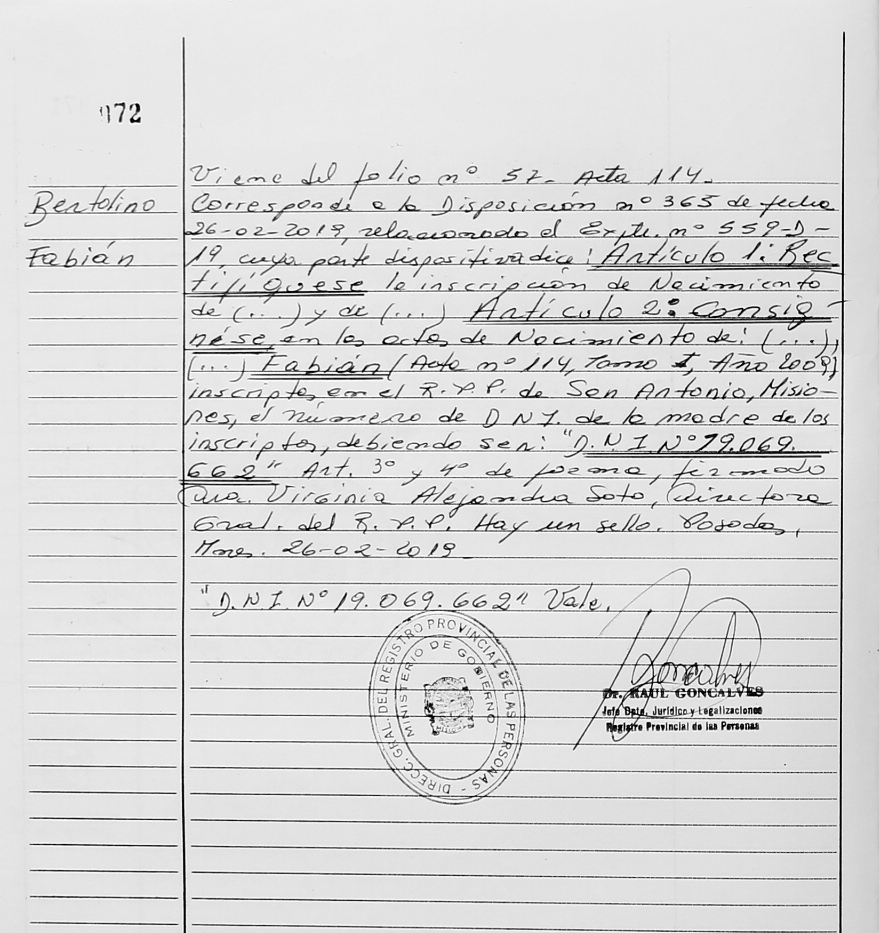 072
Bertolino
Fabián
Viene del folio nº 57- Acta 114.
Corresponde a la Disposición nº 365 de fecha
26-02-2019, relacionado el Expte. nº 559-D-
19, cuya parte dispositiva dice: Artículo 1: Rec
tifíquese la inscripción de Nacimiento
de (...) y de (...) Artículo 2º: Consig-
nése, en las actas de Nacimiento de: (...),
(...) Fabián (Acta nº 114, Tomo I, Año 2009)
inscriptos en el R.P.P. de San Antonio, Misio-
nes, el número de D.N.I. de la madre de los
inscriptos, debiendo ser: "D.N.I. Nº 19.069.
662" Art. 3º y 4º de forma, firmado
Dra. Virginia Alejandra Soto, Directora
Gral. del R.P.P. Hay un sello. Posadas,
Mnes. 26-02-2019-
"D.N.I. Nº 19.069.662" Vale.
DIRECC. GRAL. DEL REGISTRO PROVINCIAL DE LAS PERSONAS -
MINISTERIO DE GOBIERNO
Goncalves
Dr. RAUL GONCALVES
Jefe Dpto. Jurídico y Legalizaciones
Registro Provincial de las Personas